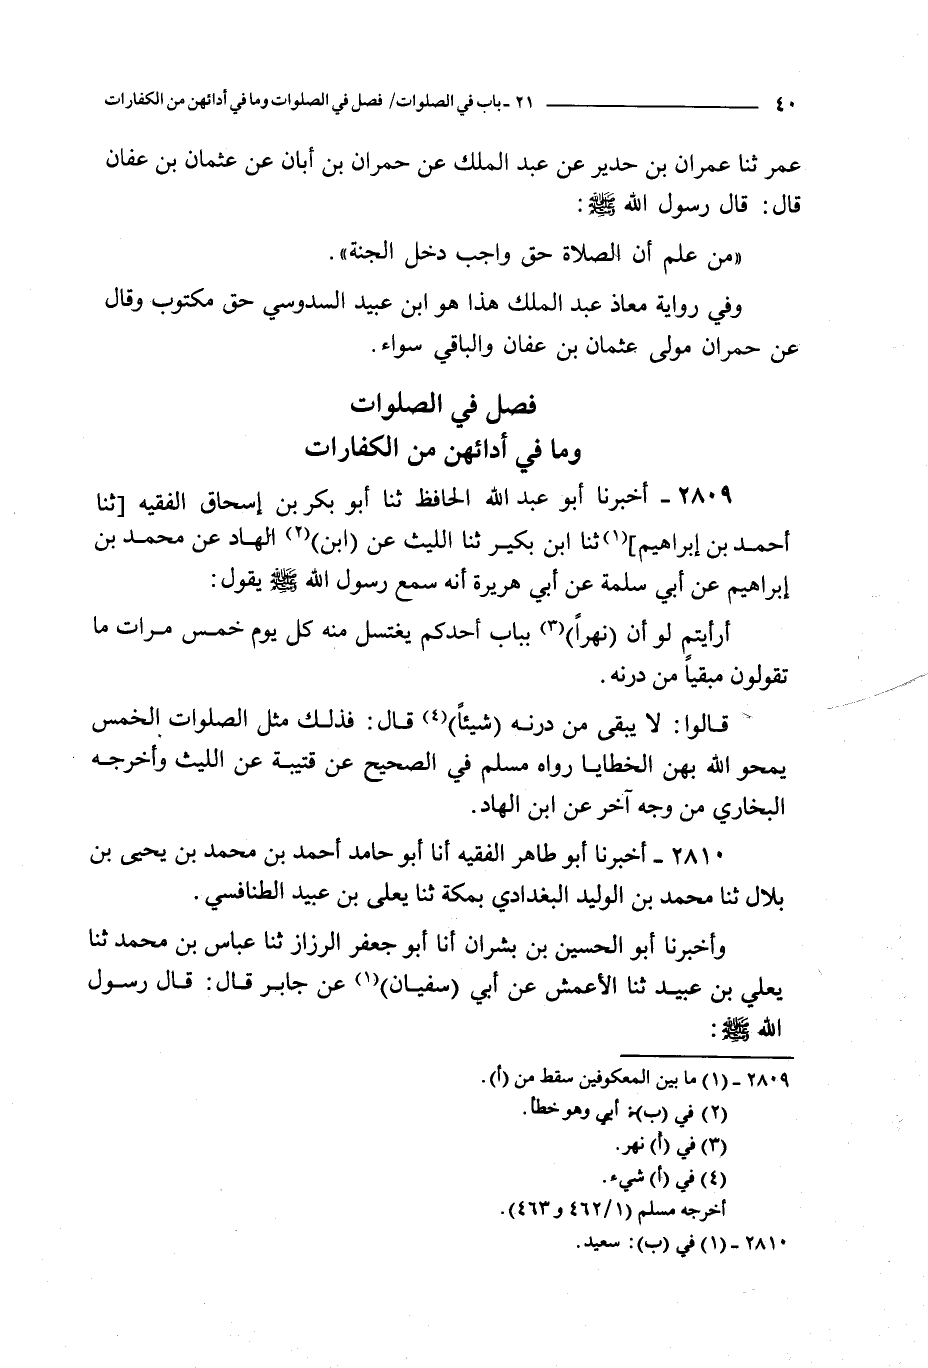 ٤٠ ٢١ - باب في الصلوات/ فصل في الصلوات وما في أدائهن من الكفارات
عمر ثنا عمران بن حدير عن عبد الملك عن حمران بن أبان عن عثمان بن عفان
قال: قال رسول الله ﷺ:
«من علم أن الصلاة حق واجب دخل الجنة».
وفي رواية معاذ عبد الملك هذا هو ابن عبيد السدوسي حق مكتوب وقال
عن حمران مولى عثمان بن عفان والباقي سواء.
فصل في الصلوات
وما في أدائهن من الكفارات
٢٨٠٩ - أخبرنا أبو عبد الله الحافظ ثنا أبو بكر بن إسحاق الفقيه [ثنا
أحمد بن إبراهيم](١) ثنا ابن بكير ثنا الليث عن (ابن)(٢) الهاد عن محمد بن
إبراهيم عن أبي سلمة عن أبي هريرة أنه سمع رسول الله ﷺ يقول:
أرأيتم لو أن (نهراً)(٣) بباب أحدكم يغتسل منه كل يوم خمس مرات ما
تقولون مبقياً من درنه.
قالوا: لا يبقى من درنه (شيئاً)(٤) قال: فذلك مثل الصلوات الخمس
يمحو الله بهن الخطايا رواه مسلم في الصحيح عن قتيبة عن الليث وأخرجه
البخاري من وجه آخر عن ابن الهاد.
٢٨١٠ - أخبرنا أبو طاهر الفقيه أنا أبو حامد أحمد بن محمد بن يحيى بن
بلال ثنا محمد بن الوليد البغدادي بمكة ثنا يعلى بن عبيد الطنافسي.
وأخبرنا أبو الحسين بن بشران أنا أبو جعفر الرزاز ثنا عباس بن محمد ثنا
يعلي بن عبيد ثنا الأعمش عن أبي (سفيان)(١) عن جابر قال: قال رسول
الله ﷺ:
٢٨٠٩ - (١) ما بين المعكوفين سقط من (أ).
(٢) في (ب): أبي وهو خطأ.
(٣) في (أ) نهر.
(٤) في (أ) شيء.
أخرجه مسلم (١/ ٤٦٢ و ٤٦٣).
٢٨١٠ - (١) في (ب): سعيد.